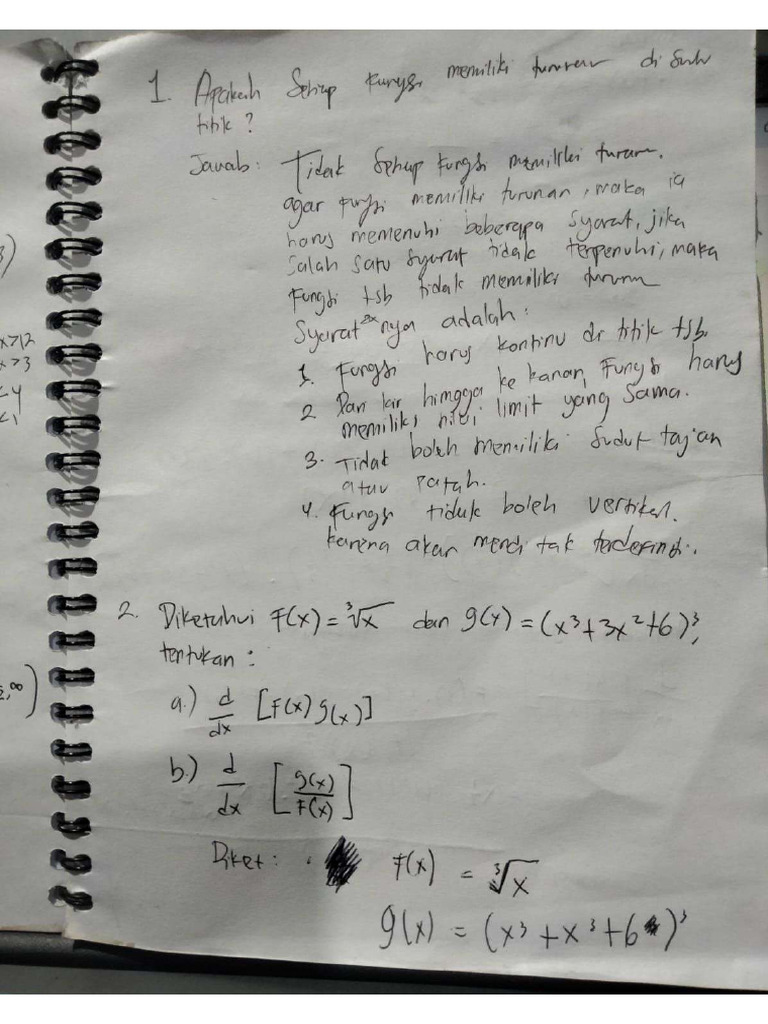 1. Apakah Setiap Fungsi memiliki turunan di Suatu
titik?
Jawab: Tidak Setiap Fungsi memiliki turunan.
agar fungsi memiliki turunan, maka ia
harus memenuhi beberapa syarat, jika
salah satu syarat tidak terpenuhi, maka
Fungsi tsb tidak memiliki turunan
Syarat2x nya adalah:
1. Fungsi harus kontinu di titik tsb.
2. Dari kiri hingga ke kanan, Fungsi harus
memiliki nilai limit yang sama.
3. Tidak boleh memiliki Sudut tajam
atau patah.
4. Fungsi tidak boleh vertikal.
karena akan menjdi tak terdefinisi.
2. Diketahui F(x) = ³√x dan g(x) = (x³+3x²+6)³,
tentukan:
a.) d/dx [F(x) g(x)]
b.) d/dx [g(x)/F(x)]
Diket: F(x) = ³√x
g(x) = (x³ + x³ + 6)³
3)
x>12
x>3
<4
<1
2,∞)